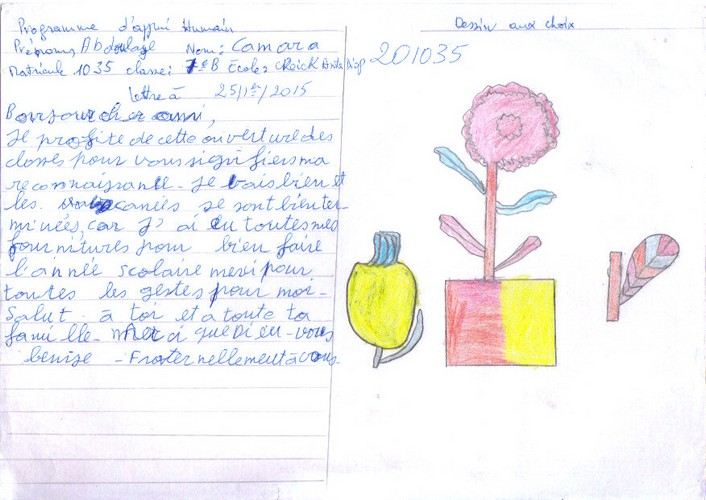 Programme d'appui Humain
Prénoms Abdoulaye Nom: Camara
Matricule 1035 classe: 7è B Ecoles CReick Anta Diop 201035
lettre à 25/11/2015
Bonjour cher ami,
Je profite de cette ouverture des
classes pour vous signifiers ma
reconnaissance. Je vais bien et
les vacances se sont bien ter-
minées, car J' ai eu toutes mes
fournitures pour bien faire
l'année scolaire mersi pour
toutes les gestes pour moi-
Salut à toi et à toute ta
famille. Merci que Dieu-vous
benise - Fraternellement à vous.
Dessin aux choix